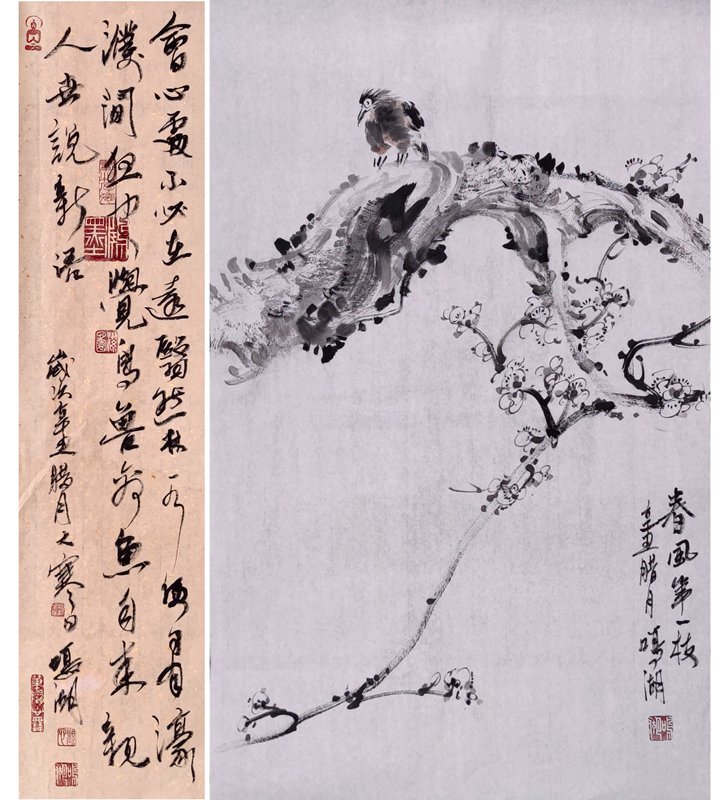 會心處不必在遠翳然林水便自有濠
濮間想也覺鳥獸禽魚自來親
人世說新语
歲次辛丑腊月大寒之日鳴湖
春風第一枝
辛丑腊月鳴湖